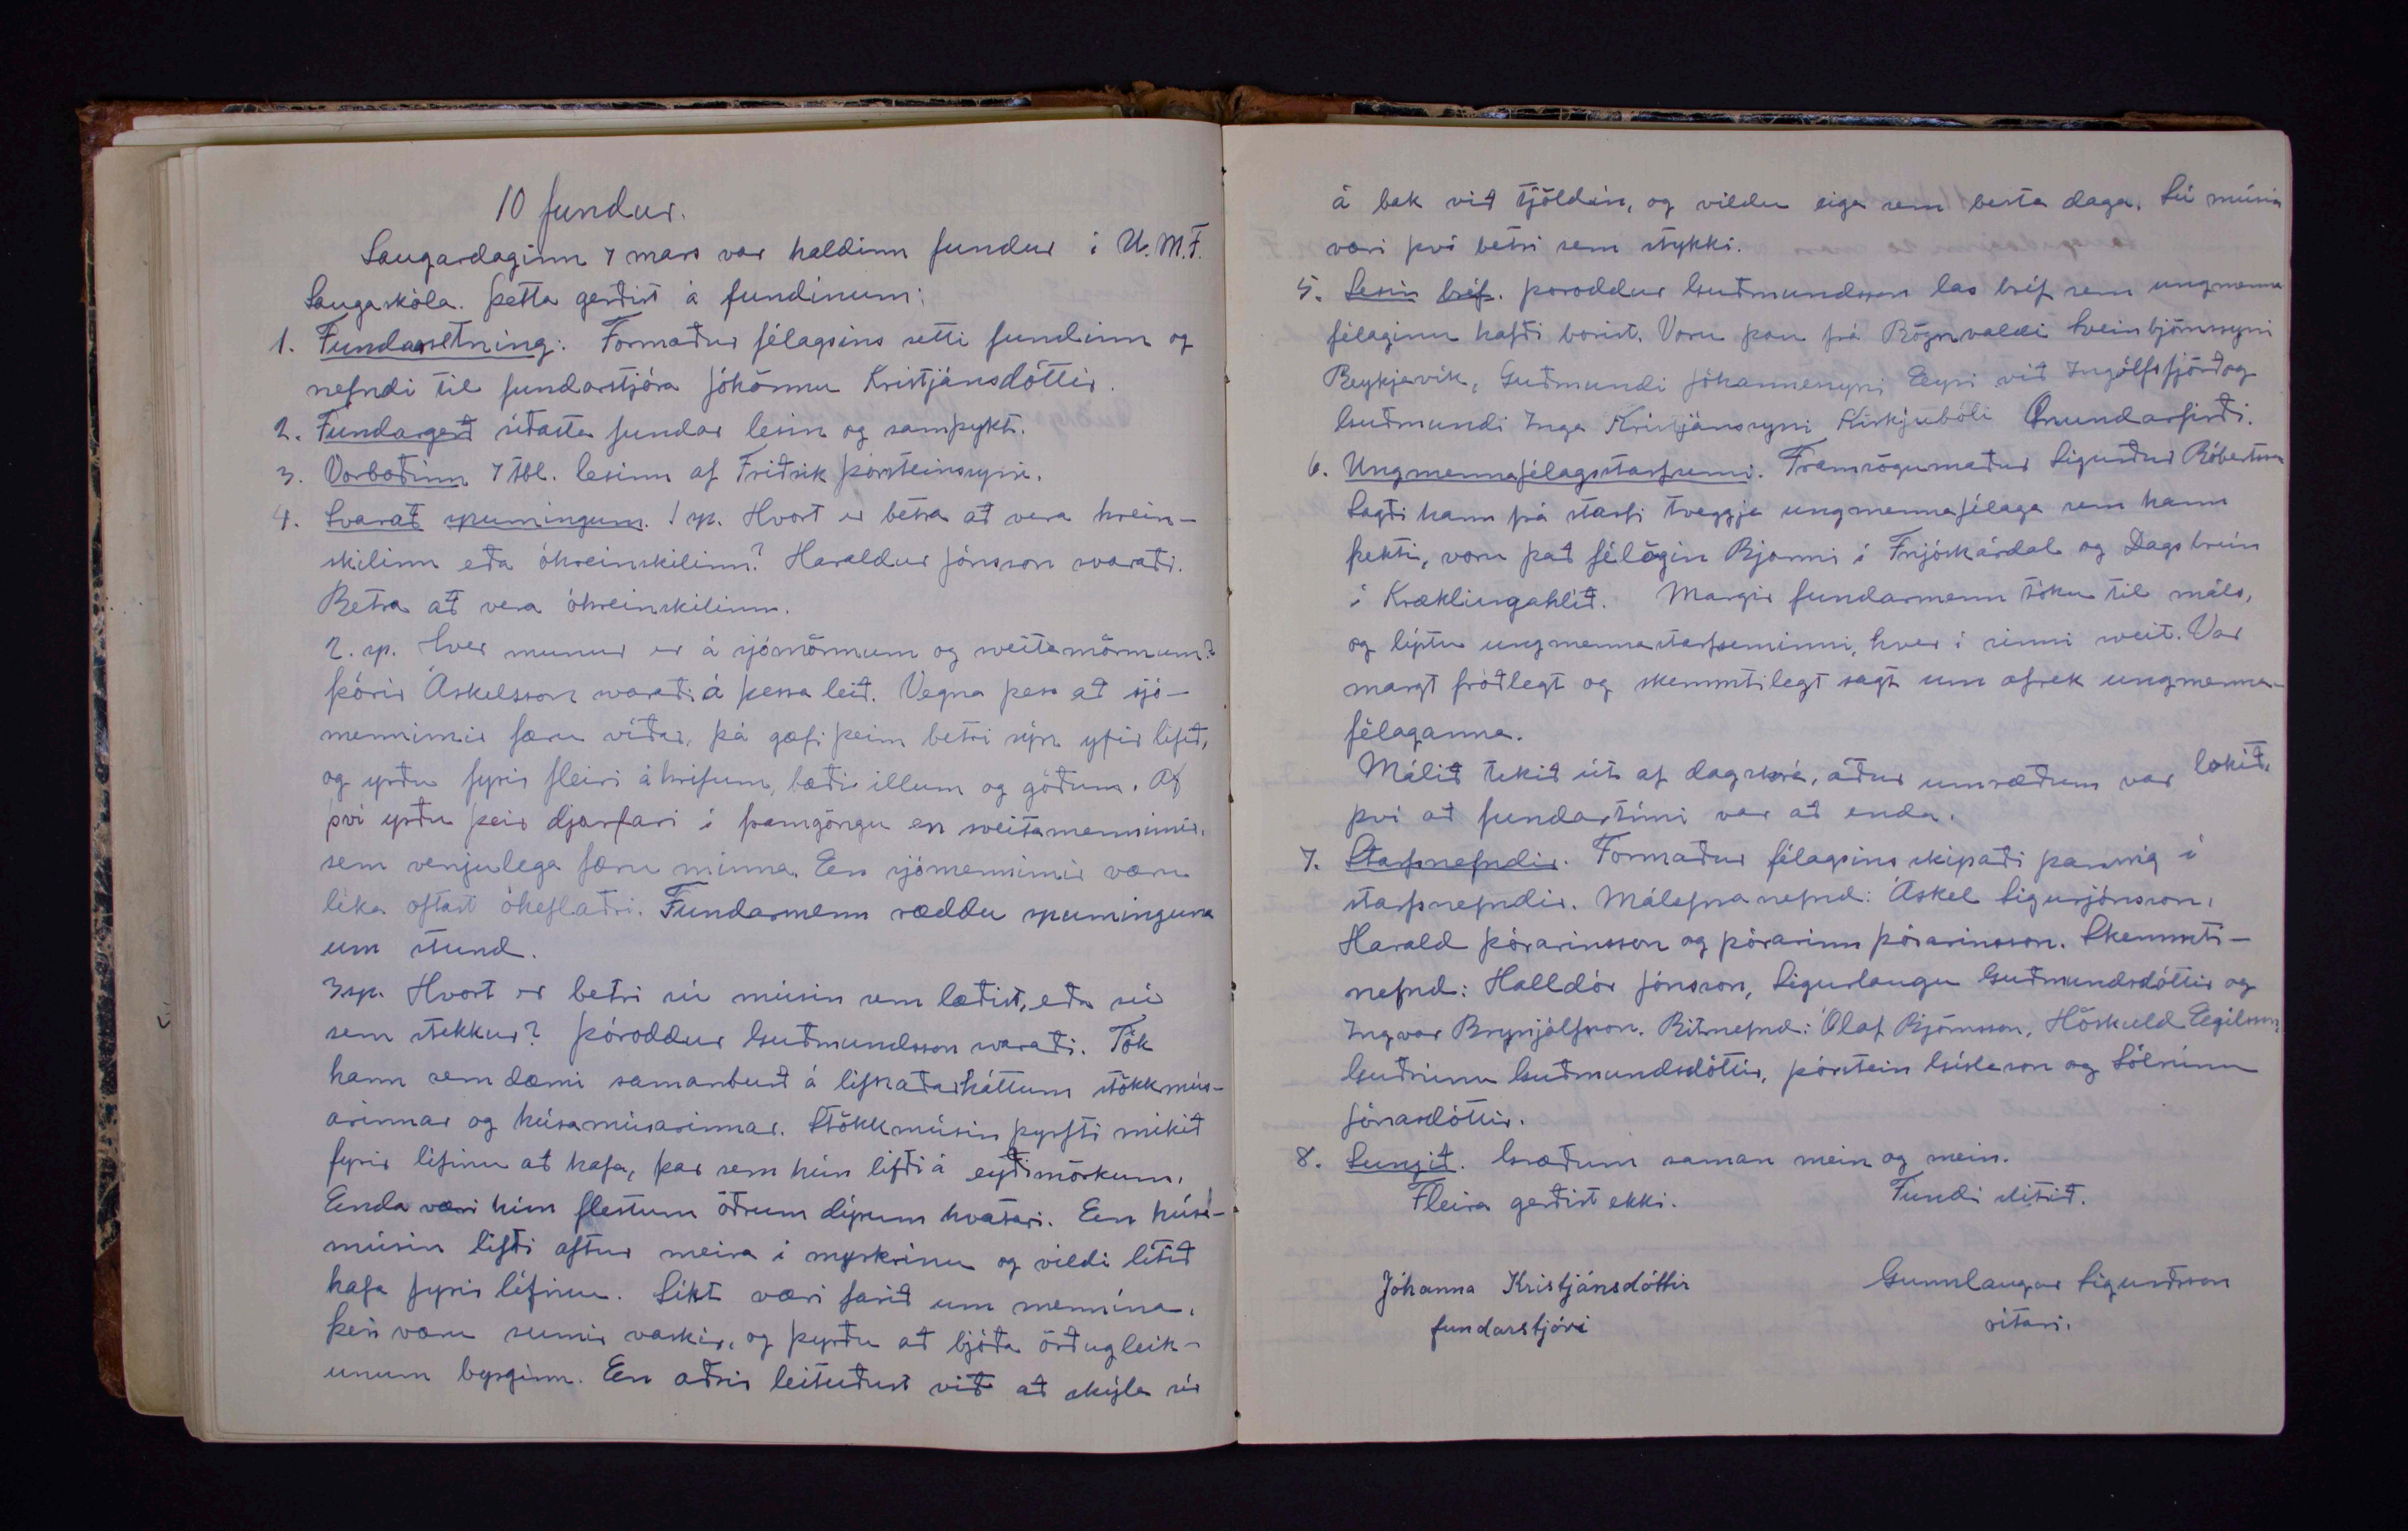 10 fundur.
Laugardaginn 7 mars var haldinn fundur í U.M.F.
Laugaskóla. Þetta gerðist á fundinum:
1. Fundarsetning: Formaður félagsins setti fundinn og
nefndi til fundarstjóra Jóhönnu Kristjánsdóttir.
2. Fundargerð síðasta fundar lesin og samþykt.
3. Vorboðinn 7 tbl. lesinn af Friðrik Þorsteinssyni.
4. Svarað spurningum. 1 sp. Hvort er betra að vera hrein-
skilinn eða óhreinskilinn? Haraldur Jónsson svaraði.
Betra að vera óhreinskilinn.
2. sp. Hver munur er á sjómönnum og sveitamönnum?
Þórir Áskelsson svaraði á þessa leið. Vegna þess að sjó-
mennirnir færu víðar, þá gæfi þeim betri sýn yfir lífið,
og yrðu fyrir fleiri áhrifum, bæði illum og góðum. Af
því yrðu þeir djarfari í framgöngu en sveitamennirnir,
sem venjulega færu minna. En sjómennirnir væru
líka oftast óheflaðri. Fundarmenn ræddu spurninguna
um stund.
3 sp. Hvort er betri sú músin sem læðist, eða sú
sem stekkur? Þóroddur Guðmundsson svaraði. Tók
hann sem dæmi samanburð á lifnaðarháttum stökkmús-
arinnar og húsamúsarinnar. Stökkmúsin þyrfti mikið
fyrir lífinu að hafa, þar sem hún lifði á eyðimörkum.
Enda væri hún flestum öðrum dýrum hvatari. En húsa-
músin lifði aftur meira í myrkrinu og vildi lítið
hafa fyrir lífinu. Líkt væri farið um mennina.
Þeir væru sumir vaskir, og þyrðu að bjóða örðugleik-
unum byrginn. En aðrir leituðust við að skýla sér
á bak við tjöldin, og vildu eiga sem besta daga. Sú músin
væri því betri sem stykki.
5. Lesin bréf. Þoroddur Guðmundsson las bréf sem ungmenna
félaginu hafði borist. Voru þau frá Rögnvaldi Sveinbjörnssyni
Reykjavík, Guðmundi Jóhannessyni Eyri við Ingólfsfjörð og
Guðmundi Inga Kristjánssyni Kirkjubóli Önundarfirði.
6. Ungmennafélagsstarfsemi. Framsögumaður Sigurður Róbertsson
Sagði hann frá starfi tveggja ungmennafélaga sem hann
þekti, voru það félögin Bjarmi í Fnjóskárdal og Dagsbrún
í Kræklingahlíð. Margir fundarmenn tóku til máls,
og lýstu ungmennastarfseminni, hver í sinni sveit. Var
margt fróðlegt og skemmtilegt sagt um afrek ungmenna-
félaganna.
Málið tekið út af dagskrá, áður umræðum var lokið,
því að fundartími var að enda.
7. Starfsnefndir. Formaður félagsins skipaði þannig í
starfsnefndir. Málefnanefnd: Áskel Sigurjónsson,
Harald Þórarinsson og Þórarinn Þórarinsson. Skemmti-
nefnd: Halldór Jónsson, Sigurlaugu Guðmundsdóttir og
Ingvar Brynjólfsson. Ritnefnd: Ólaf Björnsson, Höskuld Egilsson,
Guðrúnu Guðmundsdóttir, Þórstein Gíslason og Sólrúnu
Jónasdóttir.
8. Sungið. Græðum saman mein og mein.
Fleira gerðist ekki. Fundi slitið.
Jóhanna Kristjánsdóttir Gunnlaugur Sigurðsson
fundarstjóri ritari.